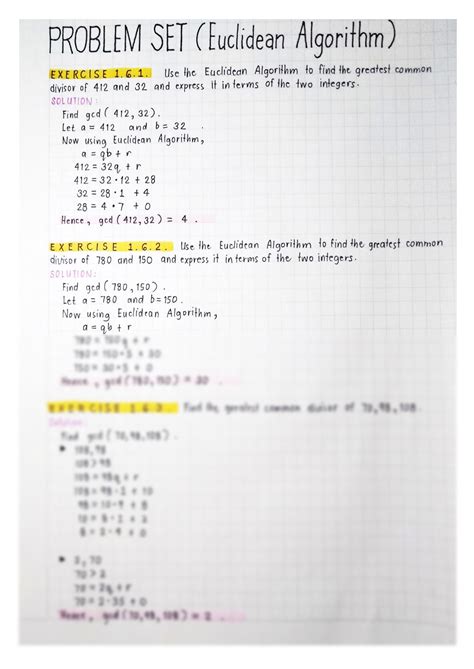 PROBLEM SET (Euclidean Algorithm)
EXERCISE 1.6.1. Use the Euclidean Algorithm to find the greatest common
divisor of 412 and 32 and express it in terms of the two integers.
SOLUTION:
Find gcd ( 412, 32).
Let a = 412 and b = 32 .
Now using Euclidean Algorithm,
a = qb + r
412 = 32q + r
412 = 32 · 12 + 28
32 = 28 · 1 + 4
28 = 4 · 7 + 0
Hence, gcd (412, 32) = 4 .
EXERCISE 1.6.2. Use the Euclidean Algorithm to find the greatest common
divisor of 780 and 150 and express it in terms of the two integers.
SOLUTION:
Find gcd ( 780, 150) .
Let a = 780 and b = 150.
Now using Euclidean Algorithm,
a = qb + r
780 = 150q + r
780 = 150 · 5 + 30
150 = 30 · 5 + 0
Hence, gcd (780, 150) = 30 .
EXERCISE 1.6.3. Find the greatest common divisor of 70, 98, 108.
Solution:
Find gcd ( 70, 98, 108) .
108, 98
108 > 98
108 = 98q + r
108 = 98 · 1 + 10
98 = 10 · 9 + 8
10 = 8 · 1 + 2
8 = 2 · 4 + 0
2, 70
70 > 2
70 = 2q + r
70 = 2 · 35 + 0
Hence, gcd (70, 98, 108) = 2 .